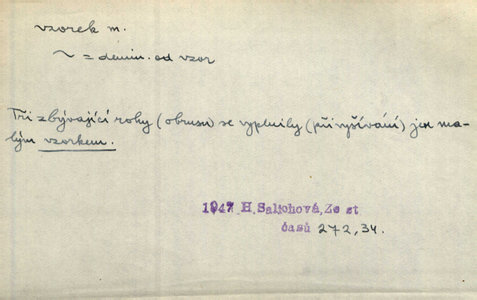 vzorek m.
~ = demin. od vzor
Tři zbývající rohy (obrusu) se vyplnily (při vyšívání) jen ma-
lým vzorkem.
1947 H. Salichová, Ze st
časů 272, 34.